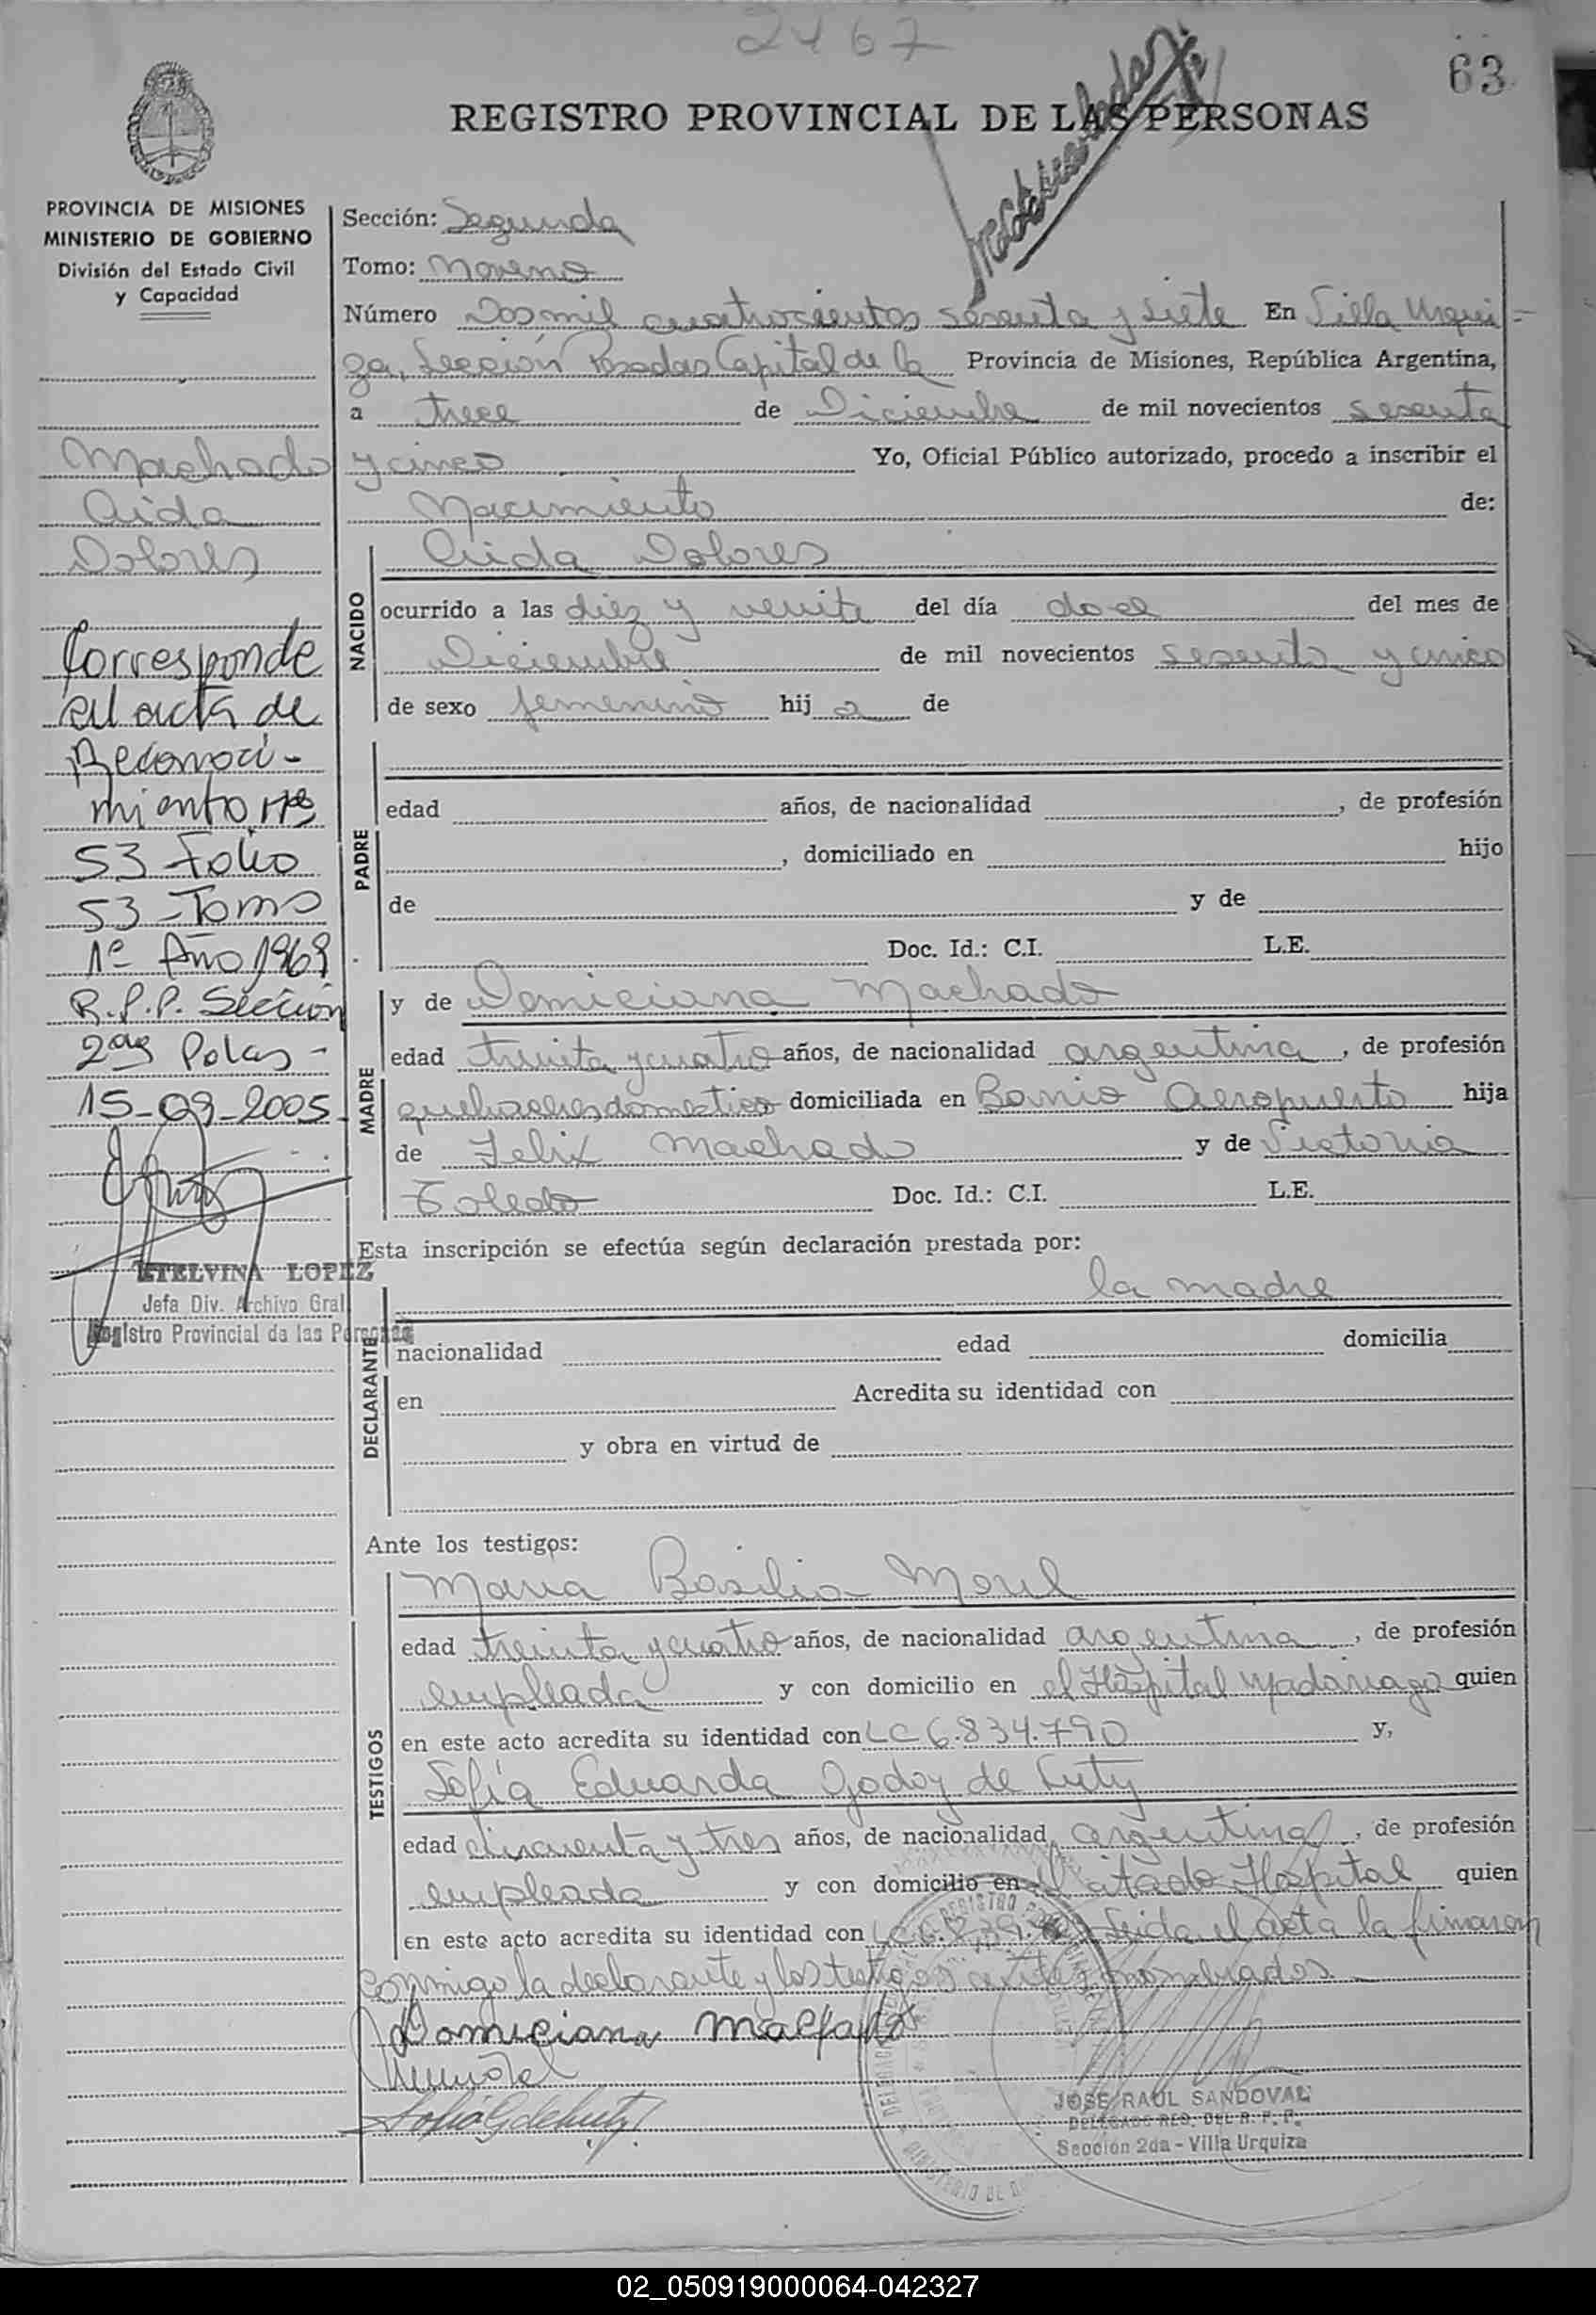 2467
63
REGISTRO PROVINCIAL DE LAS PERSONAS
PROVINCIA DE MISIONES
MINISTERIO DE GOBIERNO
División del Estado Civil
y Capacidad
Machado
Aida
Dolores
Corresponde
al acta de
Reconoci-
miento Nº
53 Folio
53 - Tomo
1º Año 1969
R.P.P. Sección
2da Pdas -
15-09-2005
ETELVINA LOPEZ
Jefa Div. Archivo Gral
Registro Provincial de las Personas
Sección: Segunda
Tomo: Noveno
Número Dos mil cuatrocientos sesenta y siete En Villa Urqui-
za, Sección Posadas Capital de la Provincia de Misiones, República Argentina,
a trece de Diciembre de mil novecientos sesenta
y cinco Yo, Oficial Público autorizado, procedo a inscribir el
Nacimiento de:
NACIDO
Aida Dolores
ocurrido a las diez y veinte del día doce del mes de
Diciembre de mil novecientos sesenta y cinco
de sexo femenino hija de
PADRE
edad años, de nacionalidad , de profesión
, domiciliado en hijo
de y de
Doc. Id.: C.I. L.E.
MADRE
y de Domiciana Machado
edad treinta y cuatro años, de nacionalidad argentina, de profesión
quehaceres domestico domiciliada en Barrio Aeropuerto hija
de Felix Machado y de Victoria
Toledo Doc. Id.: C.I. L.E.
Esta inscripción se efectúa según declaración prestada por:
la madre
DECLARANTE
nacionalidad edad domicilia
en Acredita su identidad con
y obra en virtud de
Ante los testigos:
TESTIGOS
Maria Basilia Morel
edad treinta y cuatro años, de nacionalidad argentina, de profesión
empleada y con domicilio en el Hospital Madariaga quien
en este acto acredita su identidad con LC 6.834.790 y,
Sofía Eduarda Godoy de Luty
edad cincuenta y tres años, de nacionalidad argentina, de profesión
empleada y con domicilio en el citado Hospital quien
en este acto acredita su identidad con Leida el acta la firmaron
conmigo la declarante y los testigos antes nombrados.
Domiciana Machado
JOSE RAUL SANDOVAL
DELEGADO REG. DEL R. P. P.
Sección 2da - Villa Urquiza
02_050919000064-042327